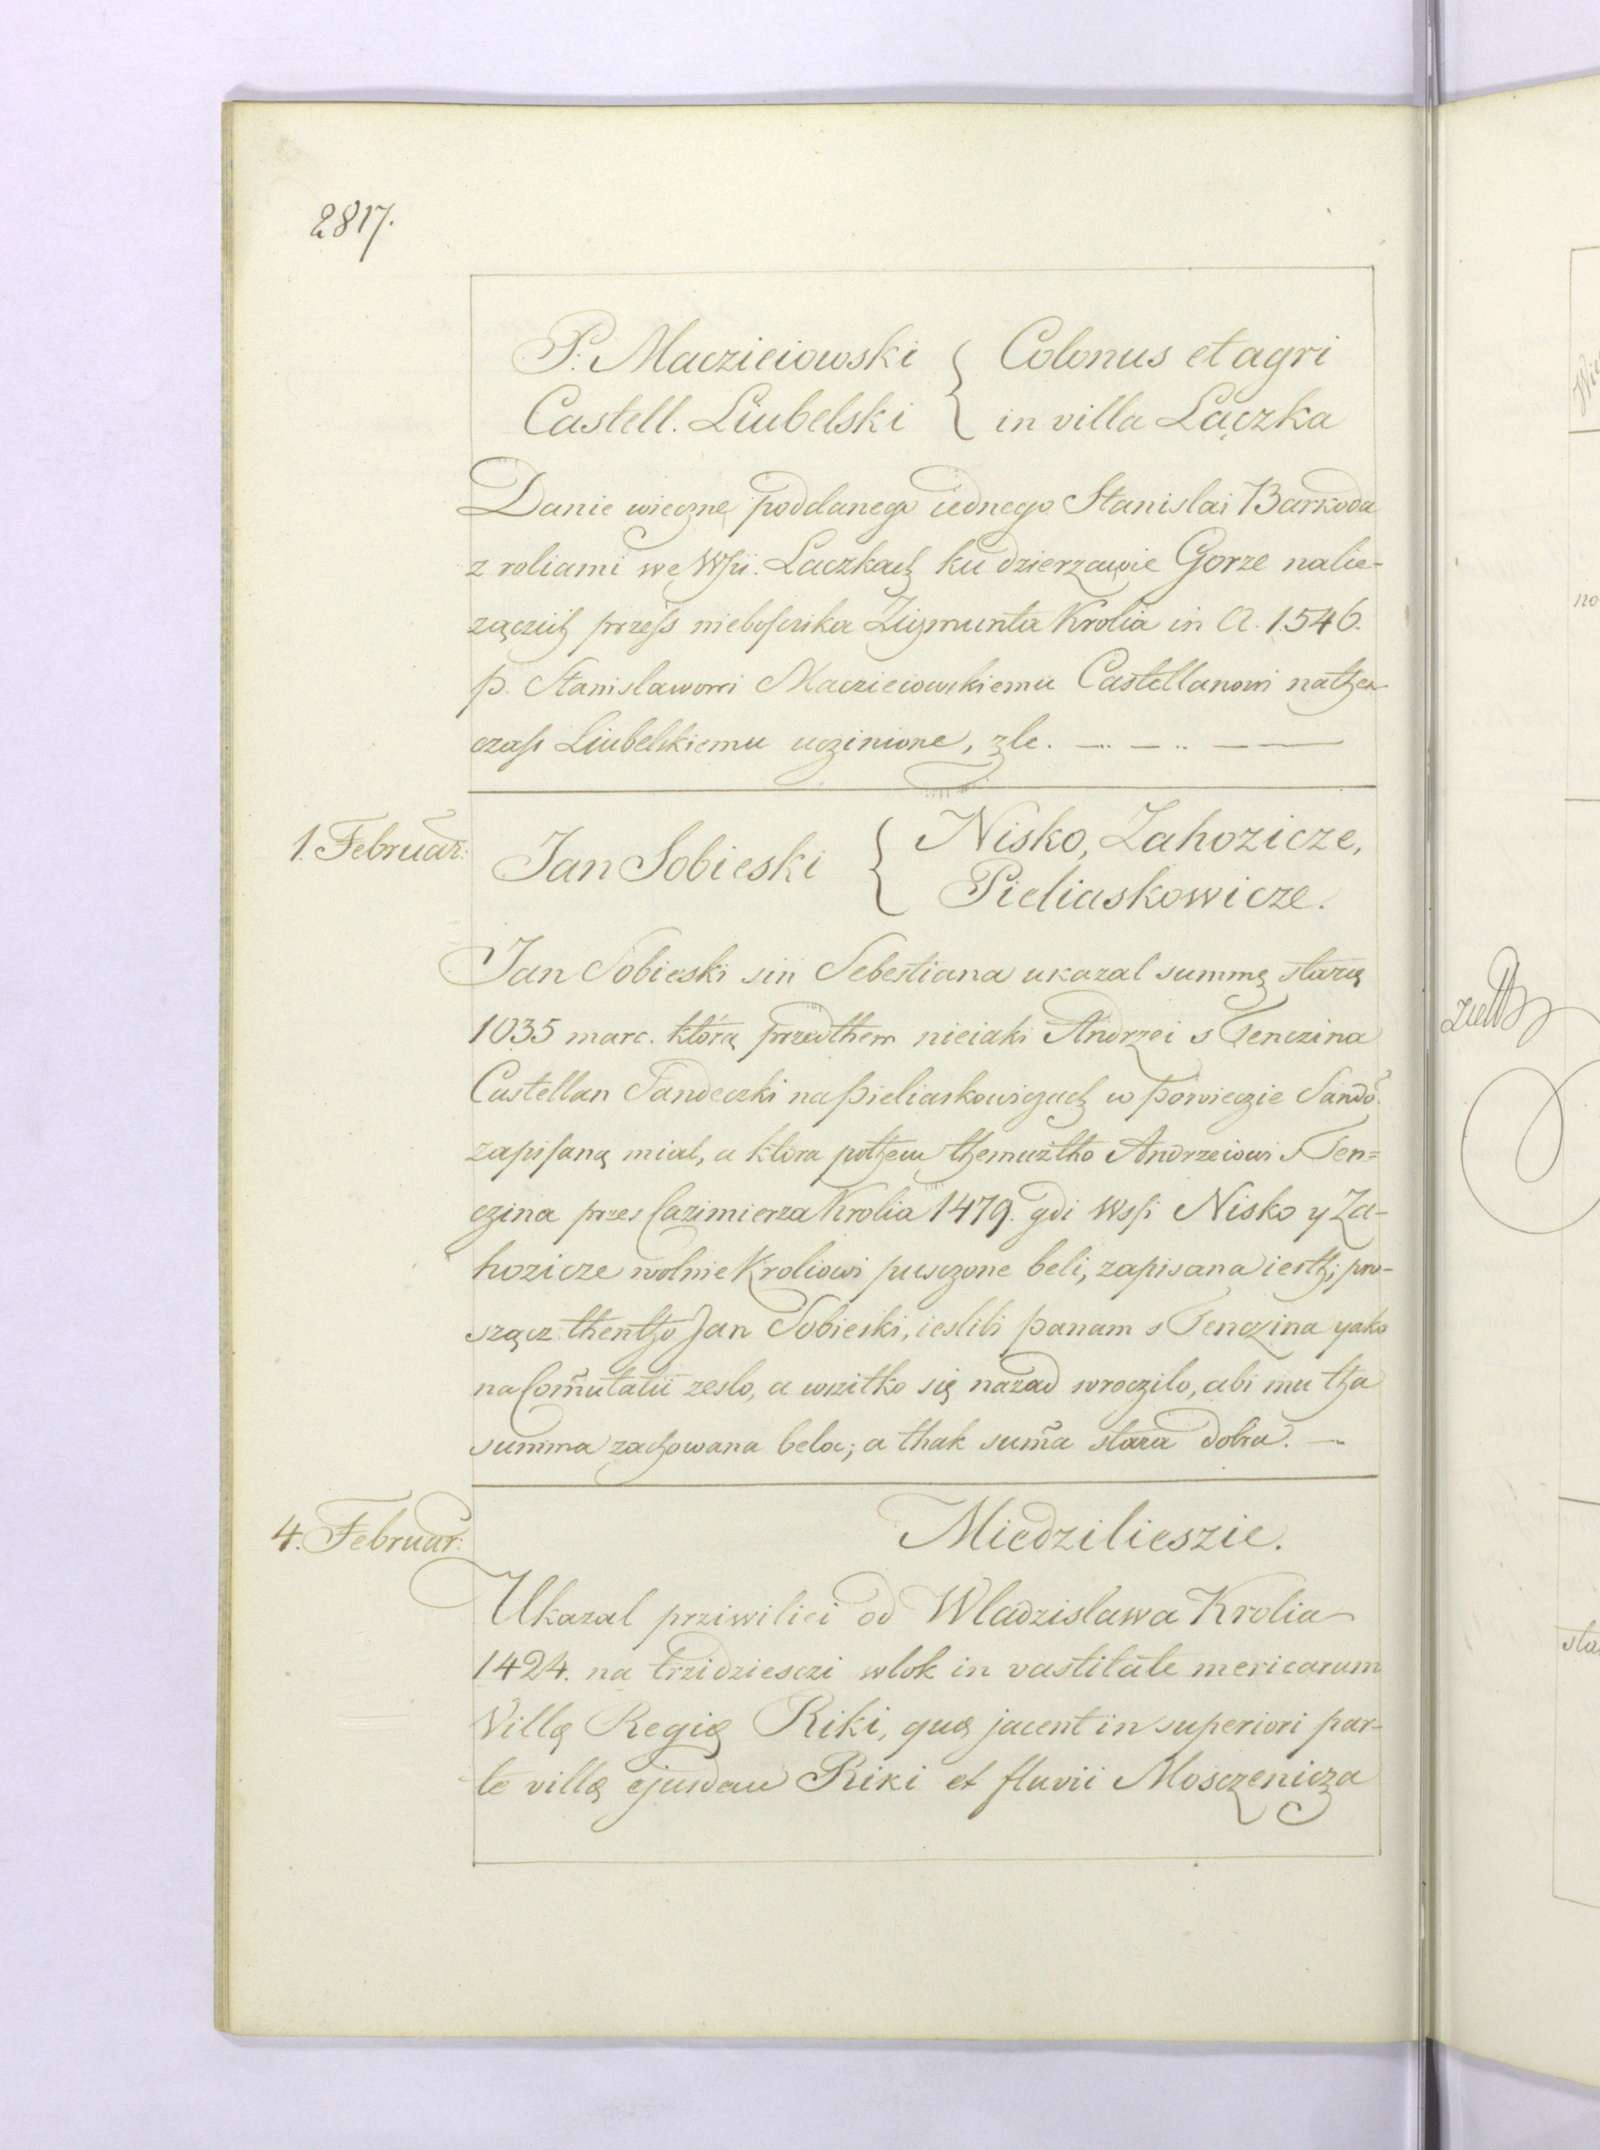 2817.
P. Macziciowski { Colonus et agri
Castell. Liubelski { in villa Lączka
Danie wieczne poddanego iednego Stanislai Barkoda
z roliami we Wsii. Laczkach ku dzierzawie Gorze nalie-
zącziih przess niebosczika Zigmunta Krolia in A. 1546.
p. Stanislawowi Macziciowskiemu Castellanowi nathen
czass Liubelskiemu uczinione, zle.
1. Februar: Jan Sobieski { Nisko, Zahozicze,
Pieliaskowicze.
Jan Sobieski siń Sebestiana ukazal summę starą
1035 marc. którą przedthem nieiaki Andrzei s Tenczina
Castellan Sandeczki na Pieliaskowiczach w Powieczie Sandõ.
zapisaną mial, a ktora pothem themuztho Andrzeiowi s Ten=
czina przes Cazimierza Krolia 1479. gdi Wsi Nisko y Za-
hozicze wolnie Kroliowi pusczone beli, zapisana iesth; pro-
szącz thentho Jan Sobieski, ieslibi panam s Tenczina yako
na Com̃utatii zeslo, a wszitko się nazad wroczilo, abi mu tha
summa zachowana bela; a thak sum̃a stara dobra.
4. Februar: Miedzilieszie.
Ukazal priwiliei od Wladzislawa Krolia
1424. na trzidziesczi wlok in vastitate mericarum
Villę Regię Riki, quę jacent in superiori par-
te villę ejusdem Riki et fluvii Mosczenicza